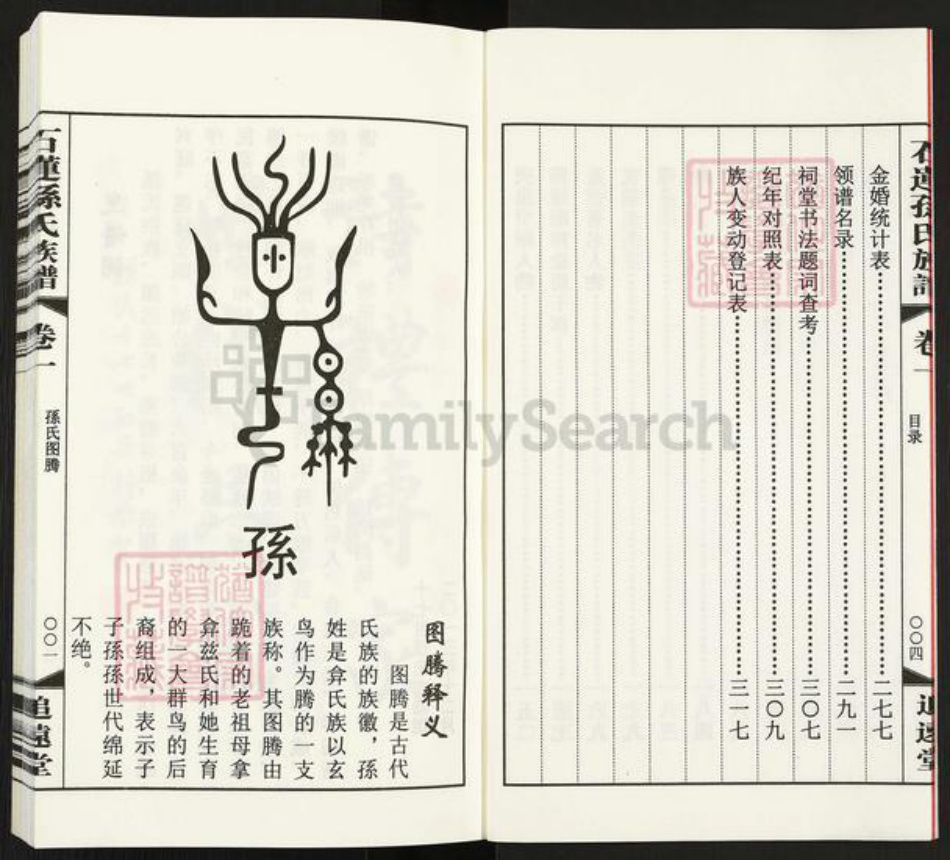 金婚统计表……二七七
领谱名录……二九一
祠堂书法题词查考……三〇七
纪年对照表……三〇九
族人变动登记表……三一七
目录
〇〇四
孫
图腾释义
图腾是古代
氏族的族徽，孙
姓是弇氏族以玄
鸟作为腾的一支
族称。其图腾由
跪着的老祖母拿
弇兹氏和她生育
的一大群鸟的后
裔组成，表示子
子孫孫世代绵延
不绝。
孫氏族譜
卷一
孫氏图腾
〇〇一
追遠堂
FamilySearch